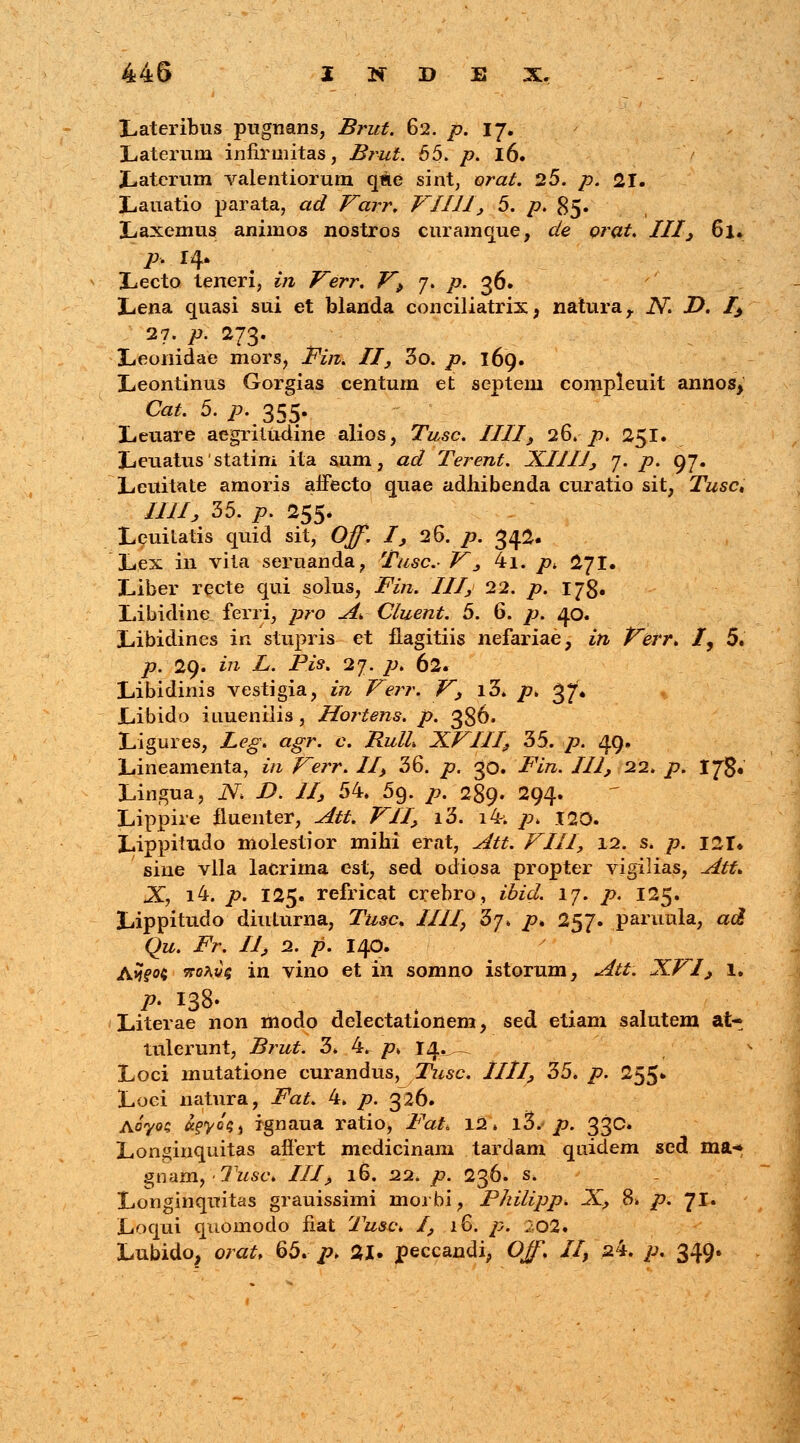 446 I N D E X.
Lateribus pugnans, Brut. 62. p. 17.
Laterum infirmitas, Brut. 55. p. 16.
Laterum valentiorum quae sint, orat. 25. p. 21.
Lauatio parata, ad Varr. VIIII, 5. p. 85.
Laxemus animos nostros curamque, de orat. III, 61.
p. 14.
Lecto teneri, in Verr. V, 7. p. 36.
Lena quasi sui et blanda conciliatrix, natura, N. D. I,
27. p. 273.
Leonidae mors, Fin. II, 30. p. 169.
Leontinus Gorgias centum et septem compleuit annos,
Cat. 5. p. 355.
Leuare aegritudine alios, Tusc. IIII, 26. p. 251.
Leuatus statim ita sum, ad Terent. XIIII, 7. p. 97.
Leuitate amoris affecto quae adhibenda curatio sit, Tusc.
IIII, 35. p. 255.
Leuitatis quid sit, Off. I, 26. p. 342.
Lex in vita seruanda, Tusc. V, 41. p. 271.
Liber recte qui solus, Fin. III, 22. p. 178.
Libidine ferri, pro A. Cluent. 5. 6. p. 40.
Libidines in stupris et flagitiis nefariae, in Verr. I, 5.
p. 29. in L. Pis. 27. p. 62.
Libidinis vestigia, in Verr. V, 13. p. 37.
Libido iuuenilis, Hortens. p. 386.
Ligures, Leg. agr. c. Rull. XVIII, 35. p. 49.
Lineamenta, in Verr. II, 36. p. 30. Fin. III, 22. p. 178.
Lingua, N. D. II, 54. 59. p. 289. 294.
Lippire fluenter, Att. VII, 13. 14. p. 120.
Lippitudo molestior mihi erat, Att. VIII, 12. s. p. 121.
sine vlla lacrima est, sed odiosa propter vigilias, Att.
X, 14. p. 125. refricat crebro, ibid. 17. p. 125.
Lippitudo diuturna, Tusc. IIII, 37. p. 257. paruula, ad
Qu. Fr. II, 2. p. 140.
Λῆρος πολὺς in vino et in somno istorum, Att. XVI, 1.
p. 138.
Literae non modo delectationem, sed etiam salutem at-
tulerunt, Brut. 3. 4. p. 14.
Loci mutatione curandus, Tusc. IIII, 35. p. 255.
Loci natura, Fat. 4. p. 326.
Λόγος ἀργός, ignaua ratio, Fat. 12. 13. p. 330.
Longinquitas affert medicinam tardam quidem sed ma-
gnam, Tusc. III, 16. 22. p. 236. s.
Longinquitas grauissimi morbi, Philipp. X, 8. p. 71.
Loqui quomodo fiat Tusc. I, 16. p. 202.
Lubido, orat. 65. p. 21. peccandi, Off. II, 24. p. 349.